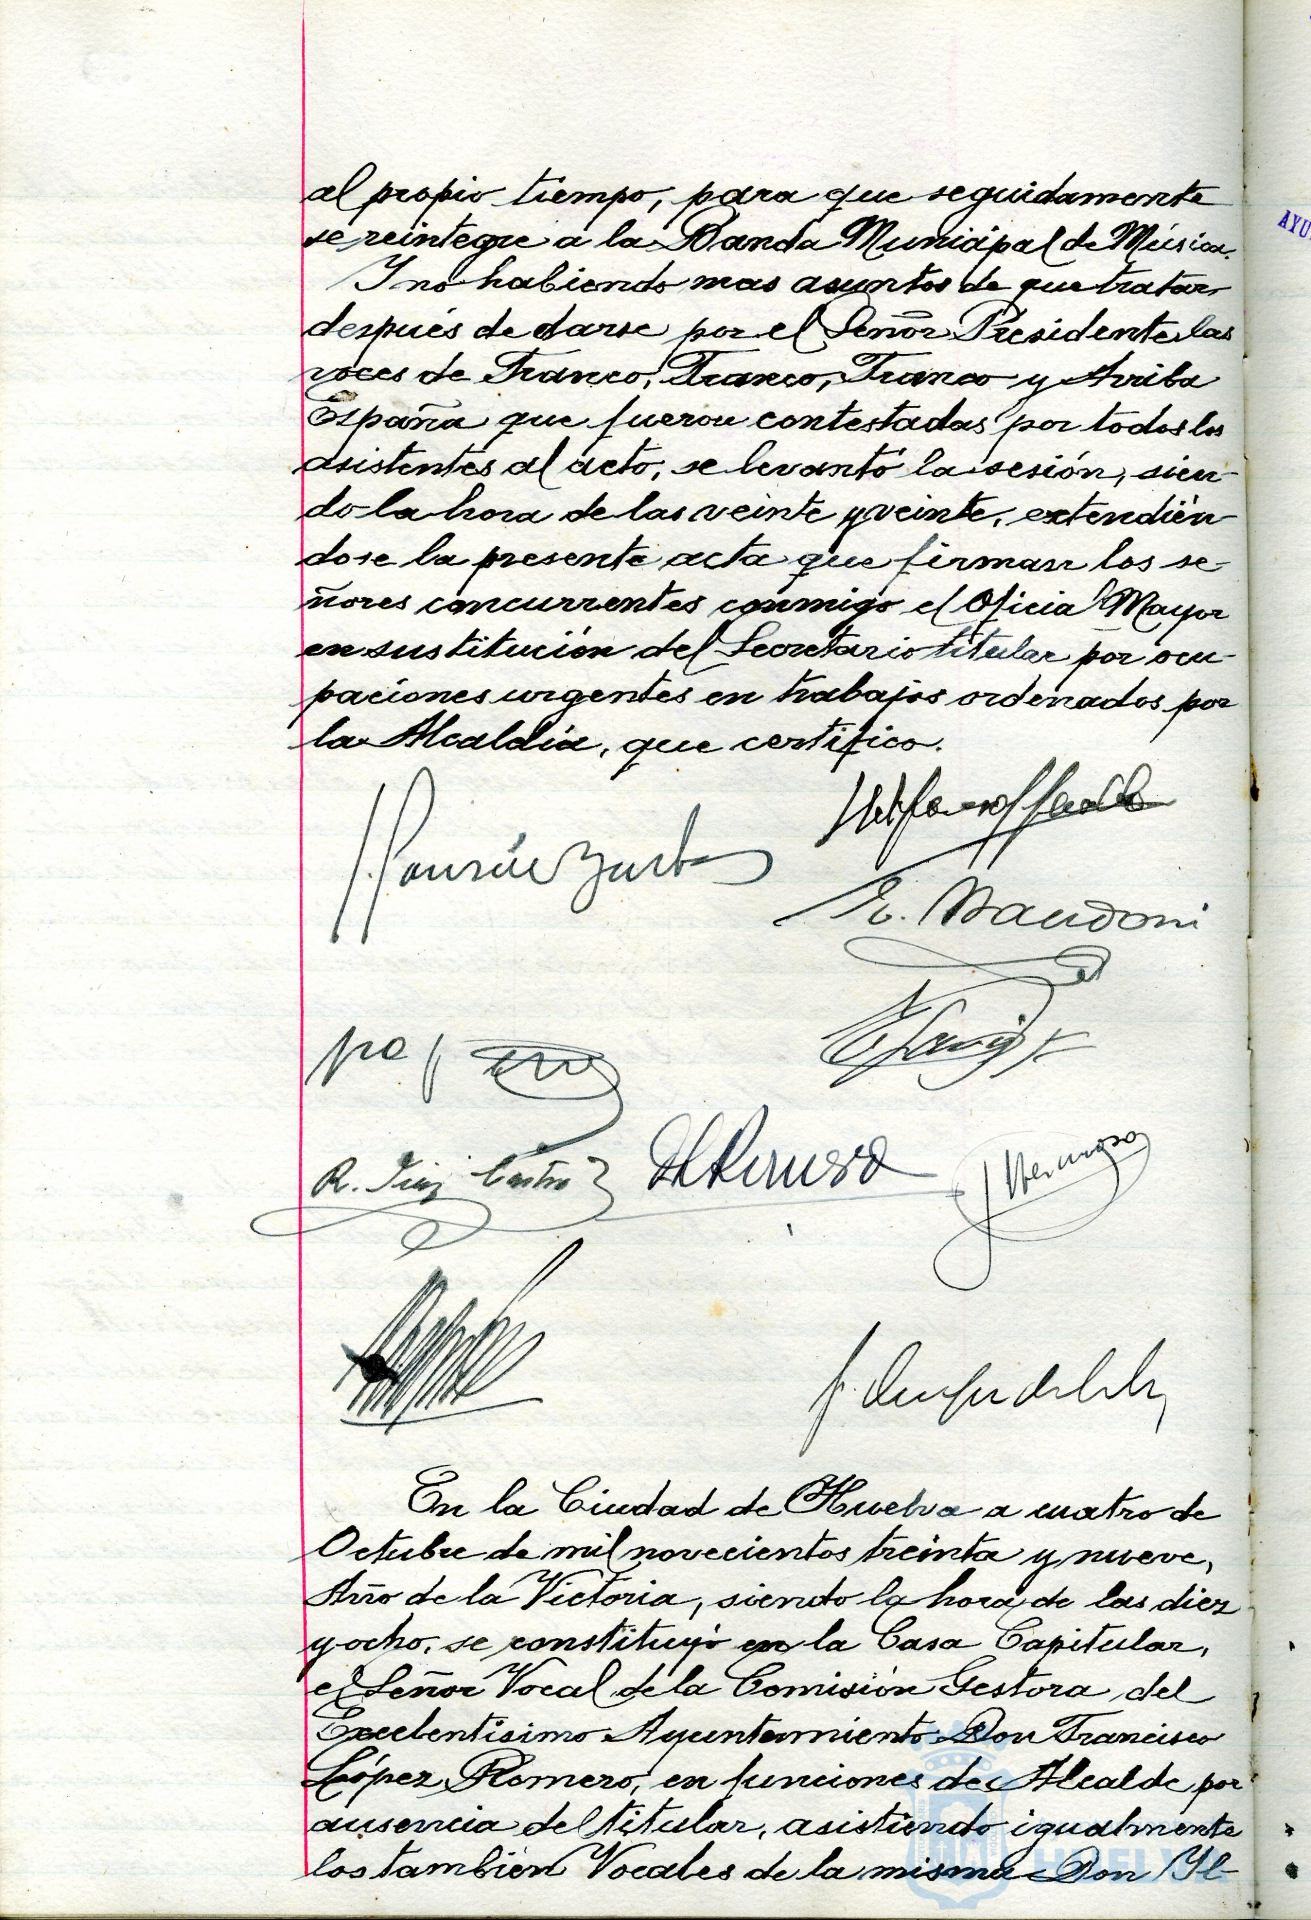 al propio tiempo, para que seguidamente
se reintegre a la Banda Municipal de Música.
Y no habiendo mas asuntos de que tratar
después de darse por el Señor Presidente las
voces de Franco, Franco, Franco y Arriba
España que fueron contestadas por todos los
asistentes al acto, se levantó la sesión, sien-
do la hora de las veinte y veinte, extendién-
dose la presente acta que firman los se-
ñores concurrentes conmigo el Oficial Mayor
en sustitución del Secretario titular por ocu-
paciones urgentes en trabajos ordenados por
la Alcaldía, que certifico.
R. Díaz Castro
En la Ciudad de Huelva a cuatro de
Octubre de mil novecientos treinta y nueve,
Año de la Victoria, siendo la hora de las diez
y ocho, se constituyó en la Casa Capitular,
el Señor Vocal de la Comisión Gestora del
Excelentísimo Ayuntamiento Don Francisco
López Romero, en funciones de Alcalde por
ausencia del titular, asistiendo igualmente
los también Vocales de la misma Don Yl-